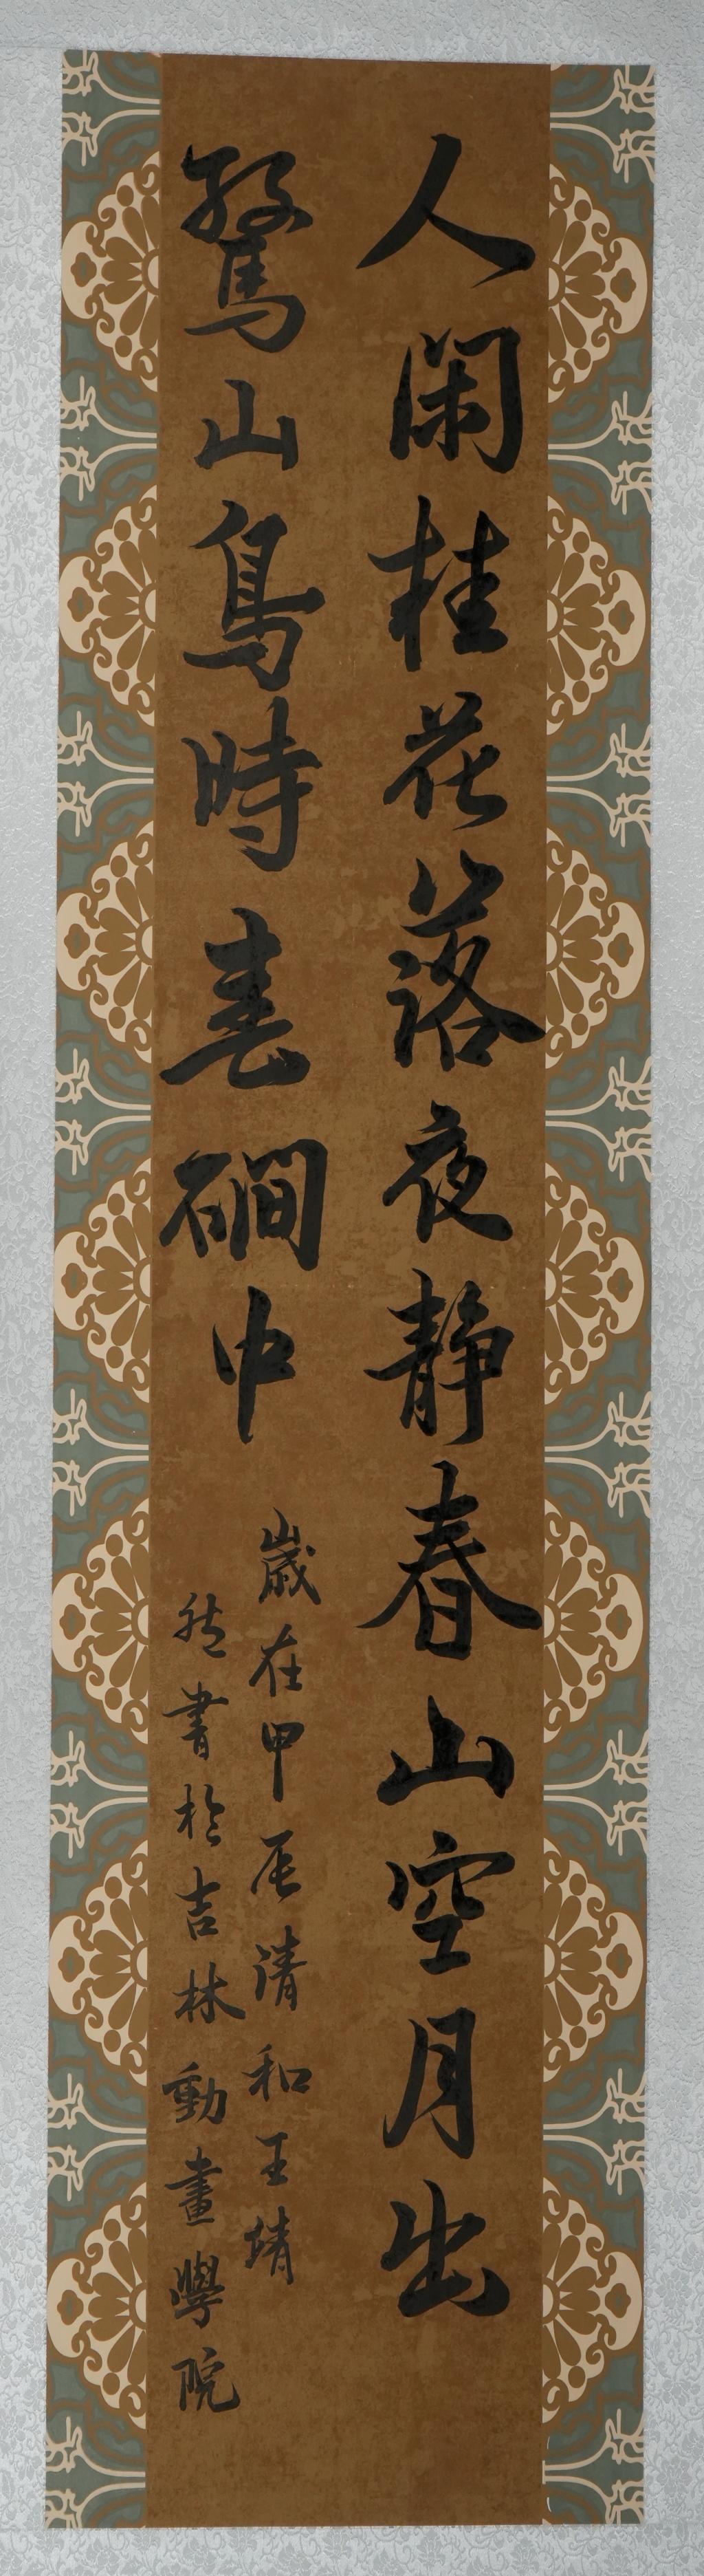 人閑桂花落夜静春山空月出
驚山鳥時春磵中
歲在甲辰清和王靖
然書於吉林動畫學院